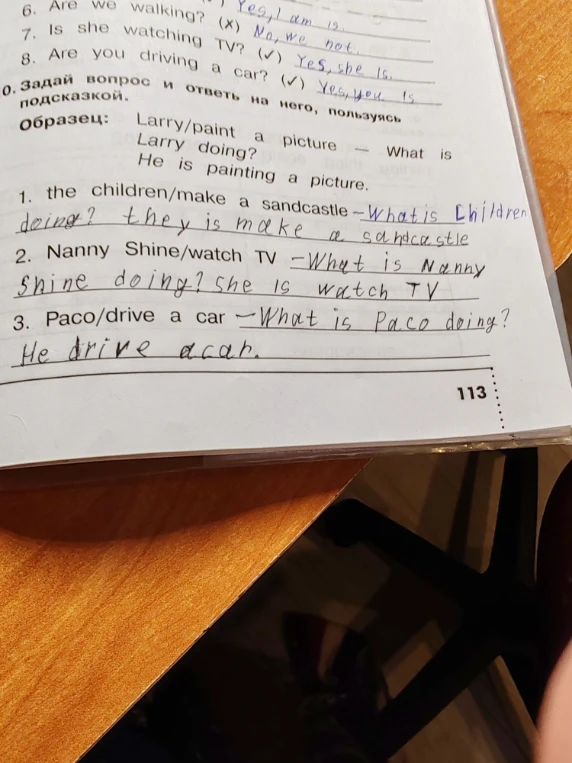 Yes, I am is.
6. Are we walking? (x) No, we not.
7. Is she watching TV? (✓) Yes, she is.
8. Are you driving a car? (✓) Yes, you is
0. Задай вопрос и ответь на него, пользуясь
подсказкой.
Образец: Larry/paint a picture — What is
Larry doing?
He is painting a picture.
1. the children/make a sandcastle – What is Children
doing? they is make a sandcastle
2. Nanny Shine/watch TV – What is Nanny
Shine doing? she is watch TV
3. Paco/drive a car – What is Paco doing?
He drive a car.
113